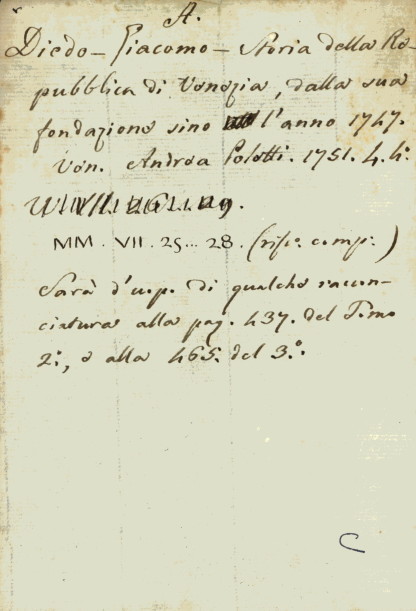 A.
Diedo - Giacomo - Storia della Re-
pubblica di Venezia, dalla sua
fondazione sino l'anno 1747.
Ven. Andrea Poletti. 1751. 4. 4:
MM. VII. 25... 28. (rife. comp.)
Sarà d'u.p. di qualche raccon-
ciatura alla pag. 437. del Tomo
2:, e alla 465. del 3°:
C